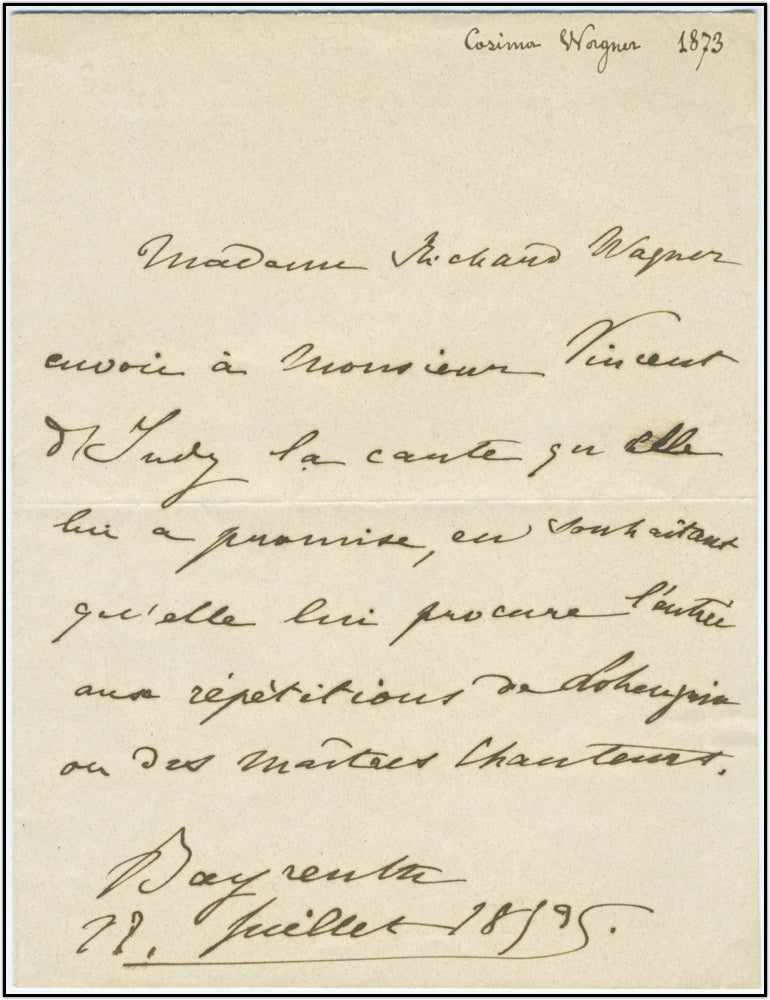 Cosima Wagner 1873
Madame Richard Wagner
envoie à Monsieur Vincent
d'Indy la carte qu'elle
lui a promise, en souhaitant
qu'elle lui procure l'entrée
aux répétitions de Lohengrin
ou des Maîtres Chanteurs.
Bayreuth
Juillet